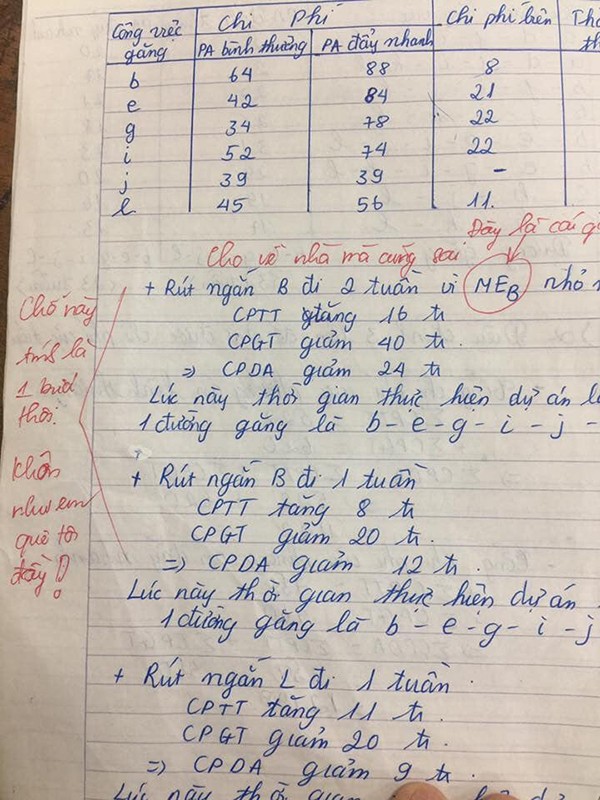 Công việc găng | Chi Phí | Chi phí biên
PA bình thường | PA đẩy nhanh
b 64 88 8
e 42 84 21
g 34 78 22
i 52 74 22
j 39 39 -
l 45 56 11.
Đây là cái gì
Cho về nhà mà cũng sai
+ Rút ngắn B đi 2 tuần vì MEB nhỏ
CPTT tăng 16 tr
CPGT giảm 40 tr
=> CPDA giảm 24 tr
Lúc này thời gian thực hiện dự án
1 đường găng là b - e - g - i - j -
Chỗ này
tính là
1 bước
thôi.
Khôn
như em
quê tôi
đầy!
+ Rút ngắn B đi 1 tuần
CPTT tăng 8 tr
CPGT giảm 20 tr.
=> CPDA giảm 12 tr.
Lúc này thời gian thực hiện dự án
1 đường găng là b - e - g - i - j
+ Rút ngắn L đi 1 tuần.
CPTT tăng 11 tr.
CPGT giảm 20 tr.
=> CPDA giảm 9 tr.
Lúc này thời gian